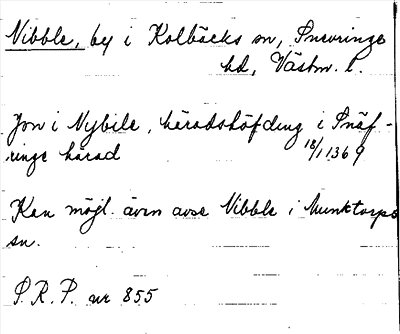 Nibble, by i Kolbäcks sn, Snevringe
hd, Västm. l.
Jon i Nybile, häradshöfding i Snäf-
ringe härad 18/1 1369
Kan möjl. även avse Nibble i Munktorps
sn.
S.R.P. nr 855